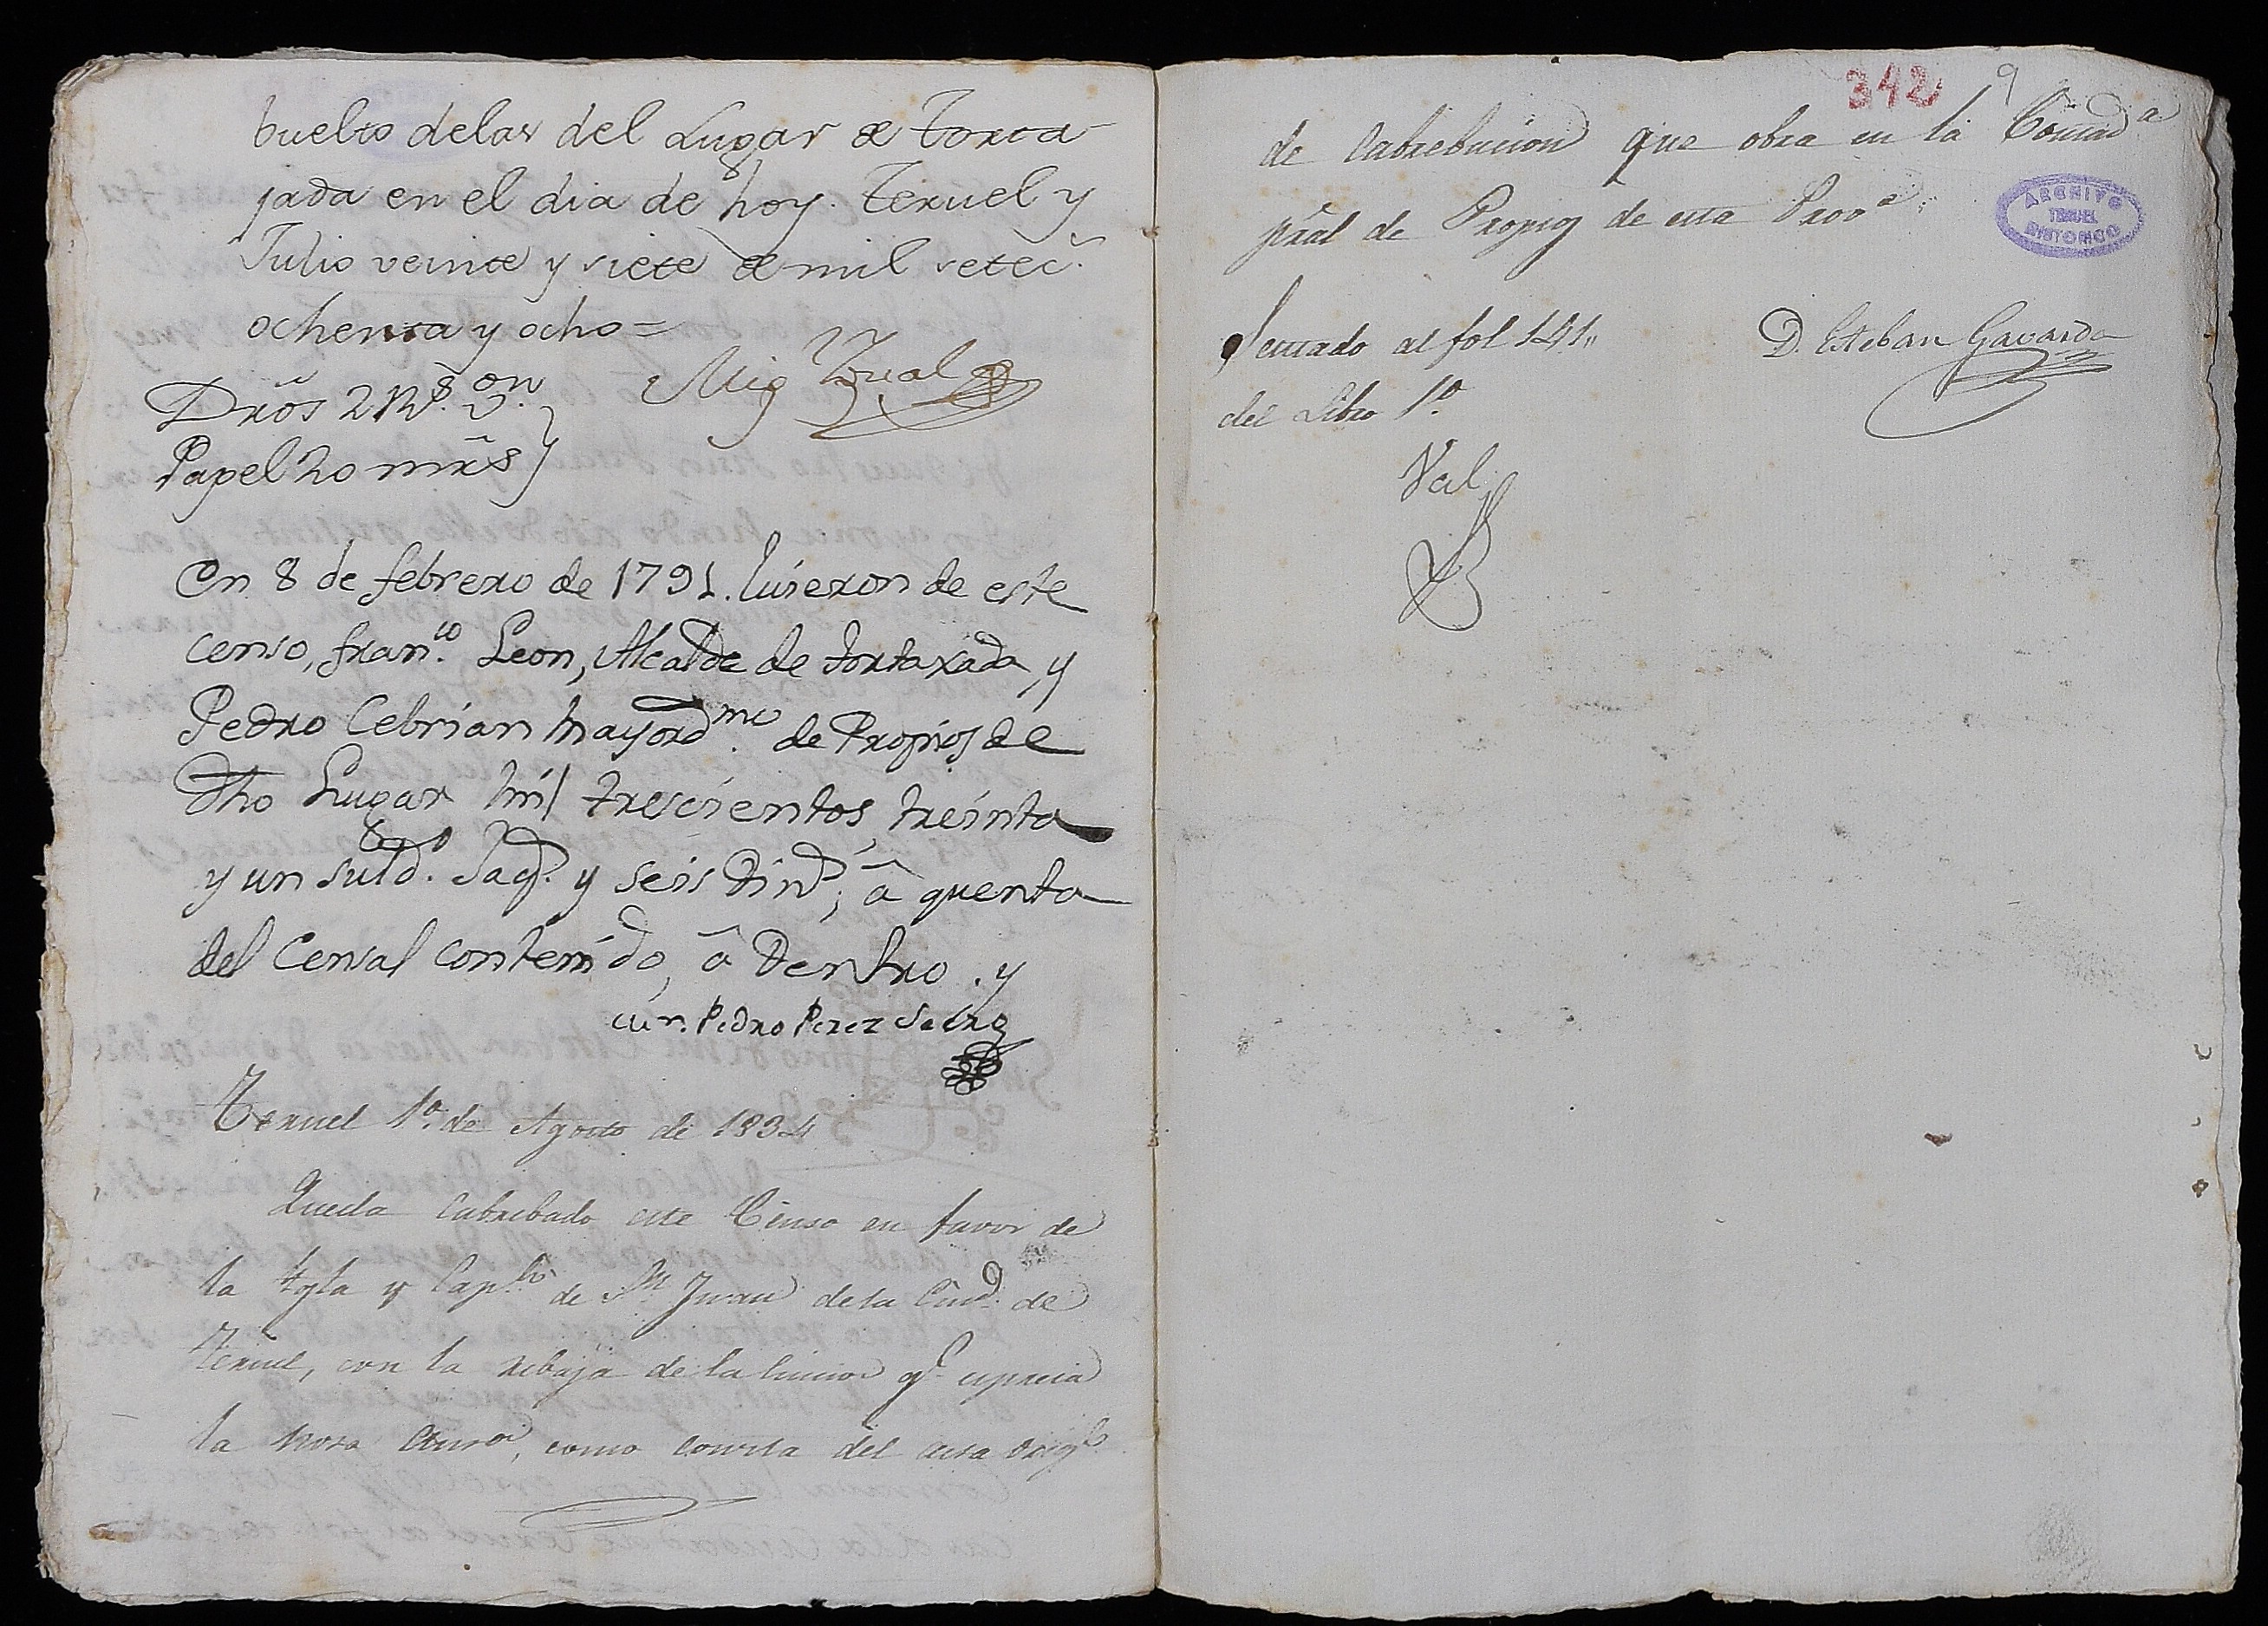 buelto delas del Lugar de Torta-
jada en el dia de hoy. Teruel y
Julio veinte y siete de mil setec.s
ochenta y ocho =
Dros 2 Rs. von.
Papel 20 mrs
Mig Zual
En 8 de febrero de 1791. luieron de este
censo, fran.co Leon, Alcalde de tortaxada, y
Pedro Cebrian Mayord.mo de Propios de
dho Lugar mil trescientos, treinta
y un suld.s Jaq.s y seis din.s, â quenta
del Censal contenido, â Dentro. y
Pedro Perez Secro
Teruel 1º de Agosto de 1834
Queda cabrebado este Censo en favor de
la Ygla y Cap.lo de Sn Juan de la Ciud. de
Teruel, con la rebaja de la luicion q.e expresa
la nota anter.or, como consta del acta orig.l
342
9
de Cabrebacion que obra en la Contad.a
pral de Propios de esta Prov.a
ARCHIVO
TERUEL
HISTORICO
Sentado al fol 141"
del Libro 1º
D. Esteban Gavarda
Val